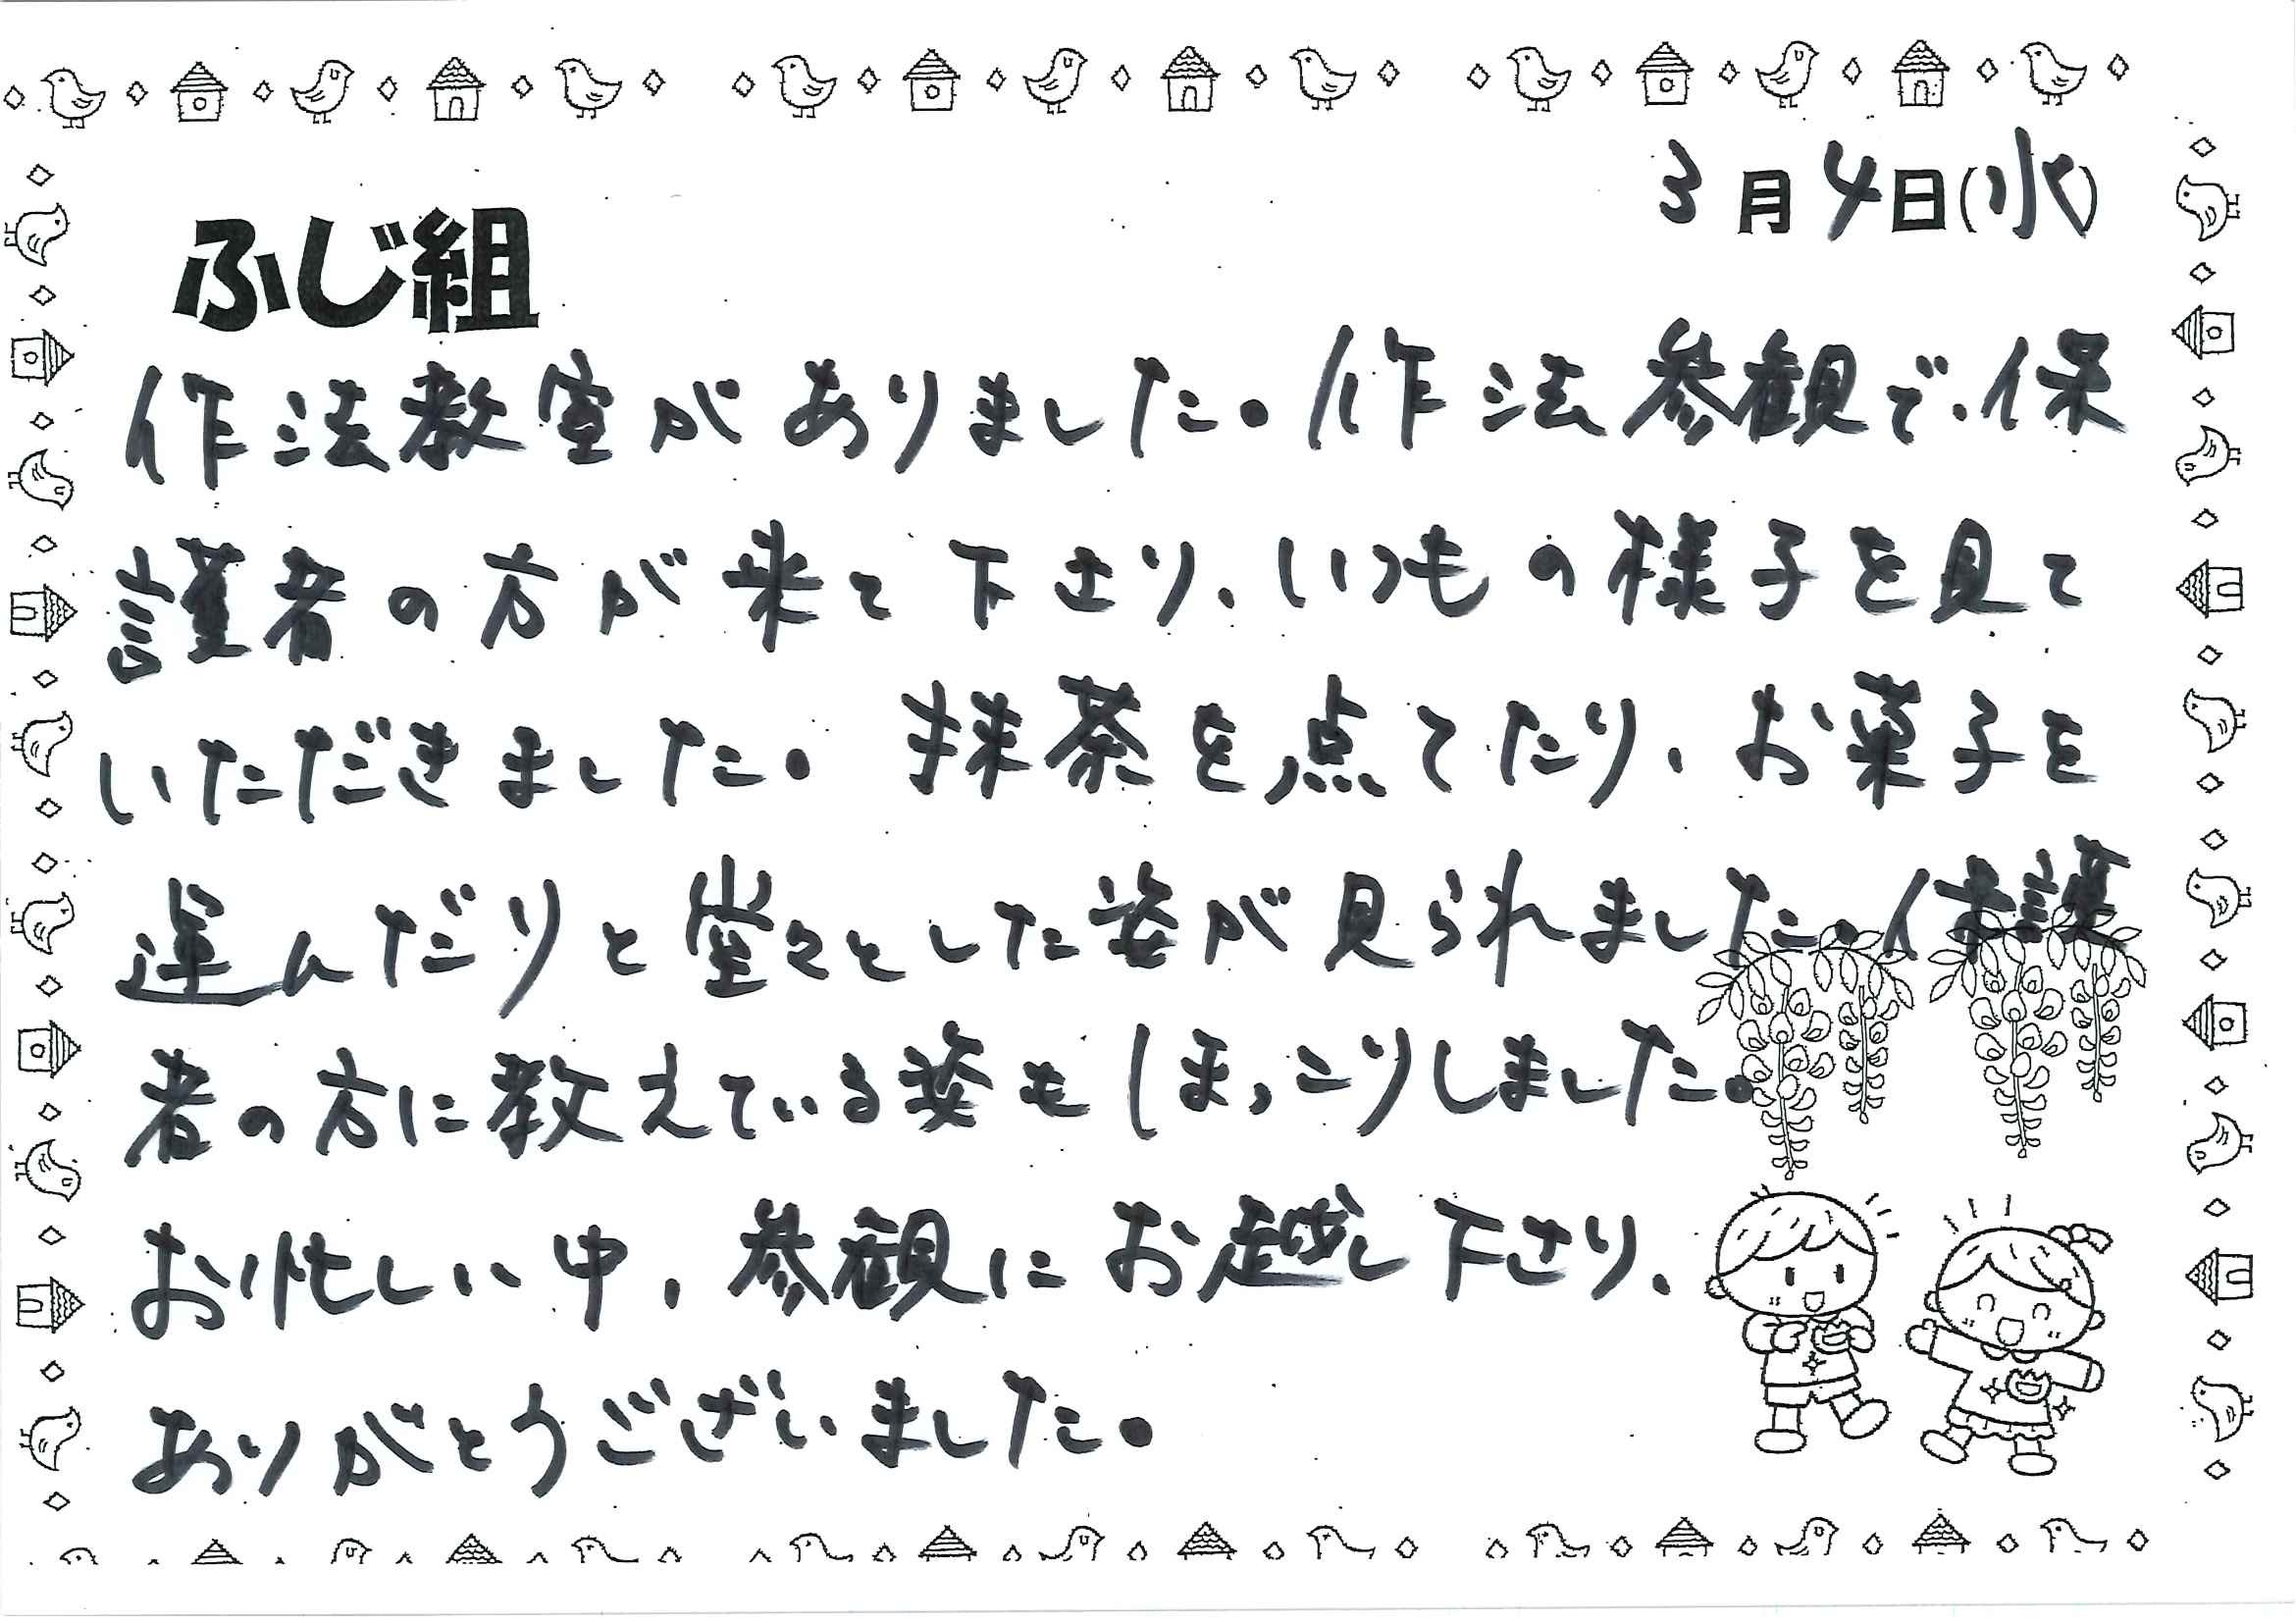 3月4日(水)
ふじ組
作法教室がありました。作法参観で、保
護者の方が来て下さり、いつもの様子を見て
いただきました。抹茶を点てたり、お菓子を
運んだりと堂々とした姿が見られました。保護
者の方に教えている姿もほっこりしました。
お忙しい中、参観にお越し下さり、
ありがとうございました。